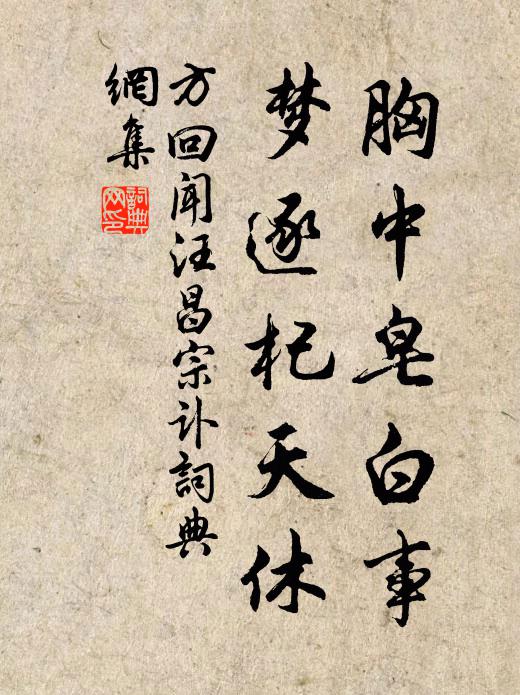 胸中皂白事
梦逐杞天休
方回闻汪昌宗讣詞典
網集
詞典
网印